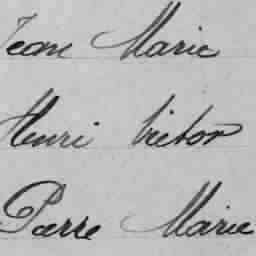 Jean Marie
Henri Victor
Pierre Marie